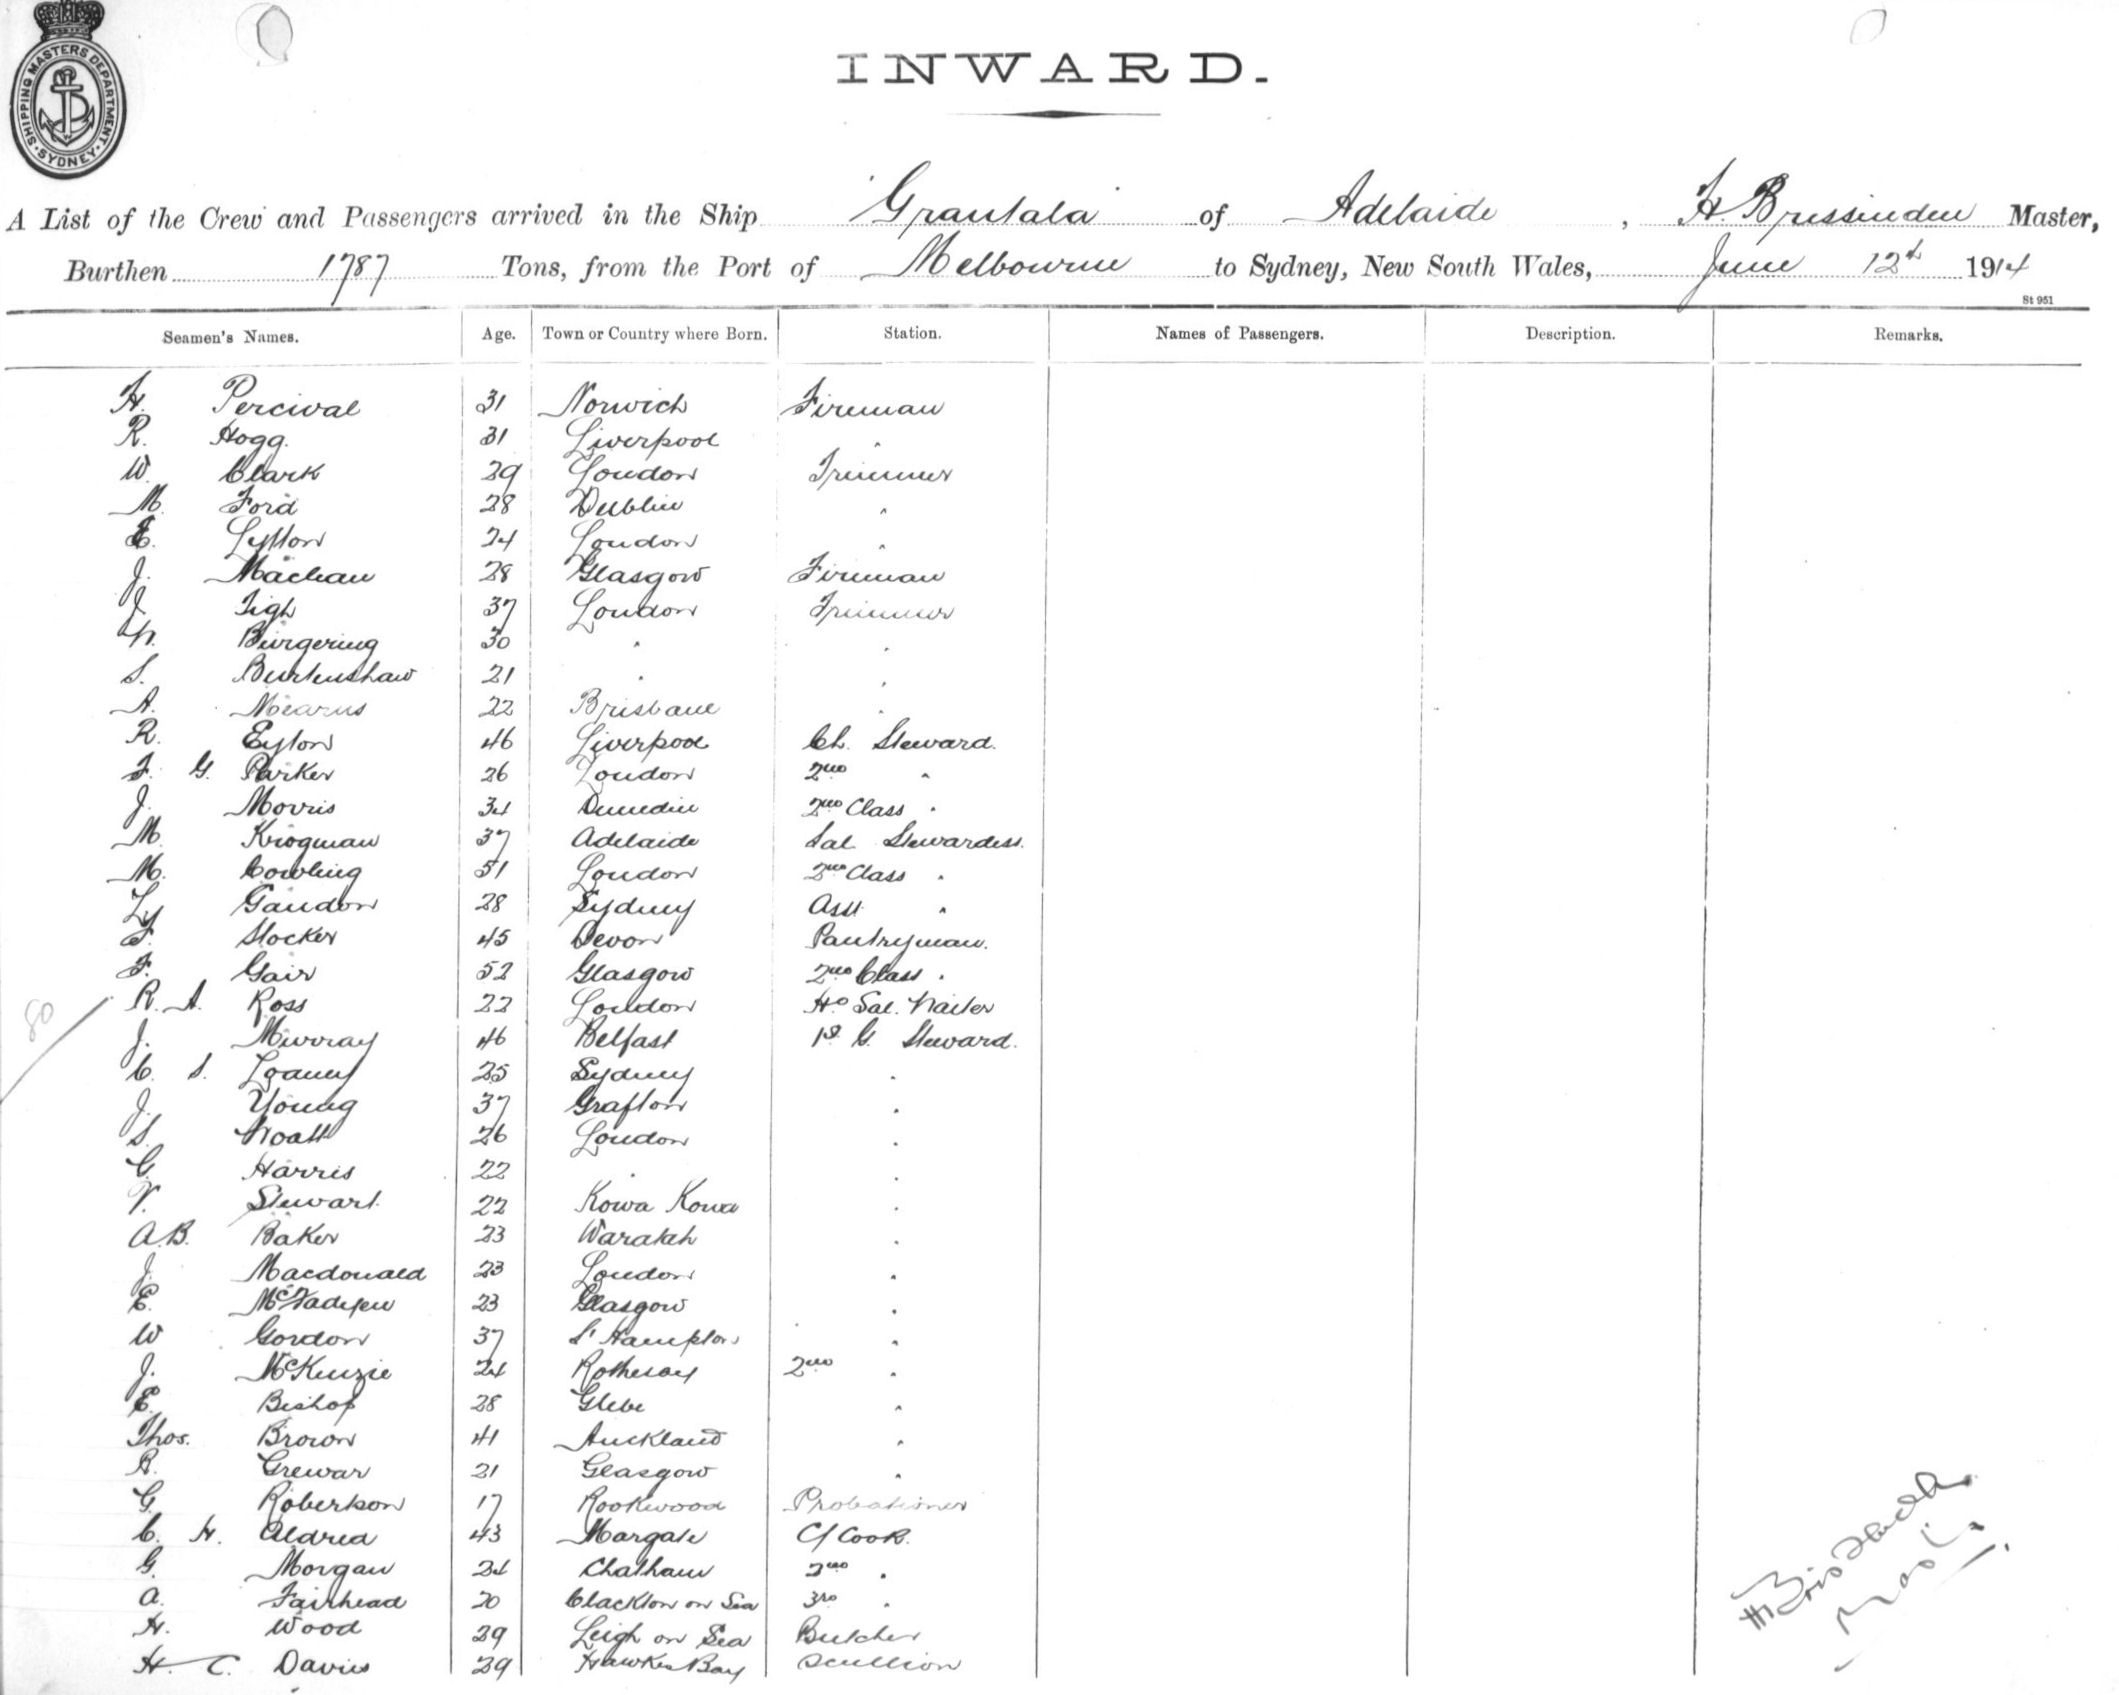 SHIPPING MASTERS DEPARTMENT
SYDNEY
INWARD.
A List of the Crew and Passengers arrived in the Ship Grantala of Adelaide, H. Brissenden Master,
Burthen 1787 Tons, from the Port of Melbourne to Sydney, New South Wales, June 12th 1914
St 951
Seamen's Names. Age. Town or Country where Born. Station. Names of Passengers. Description. Remarks.
H. Percival 31 Norwich Fireman
R. Hogg. 31 Liverpool "
W. Clark 29 London Trimmer
M. Ford 28 Dublin "
E. Lytton 24 London "
J. Maclean 28 Glasgow Fireman
J. Tigh 37 London Trimmer
Burgering 30 " "
S. Burtenshaw 21 " "
A. Mearns 22 Brisbane "
R. Eyton 46 Liverpool Ch. Steward.
F. G. Parker 26 London 2nd "
J. Morris 34 Dunedin 2nd Class "
M. Krogman 37 Adelaide Sal Stewardess.
M. Cowling 51 London 2nd Class "
Ly Gaudon 28 Sydney Asst "
F. Stocker 45 Devon Pantryman.
F. Gair 52 Glasgow 2nd Class "
R. A. Ross 22 London Hd Sal. Waiter
80
J. Murray 46 Belfast 1st G. Steward.
C. S. 25 Sydney "
J. Young 37 Grafton "
S. Noall 26 London "
G. Harris 22 " "
V. Stewart 22 Kowa Kowa "
A.B. Baker 23 Waratah "
J. Macdonald 23 London "
E. McFadyen 23 Glasgow "
W Gordon 37 S'Hampton "
J. McKenzie 24 Rothesay 2nd "
E. Bishop 28 Glebe "
Thos. Brown 41 Auckland "
R. Grewar 21 Glasgow "
G. Robertson 17 Rookwood Probationer
C. H. Aldred 43 Margate C/ Cook.
G. Morgan 24 Chatham 2nd "
A. Fairhead 20 Clackton on Sea 3rd "
H. Wood 29 Leigh on Sea Butcher
H. C. Davies 29 Hawkes Bay Scullion